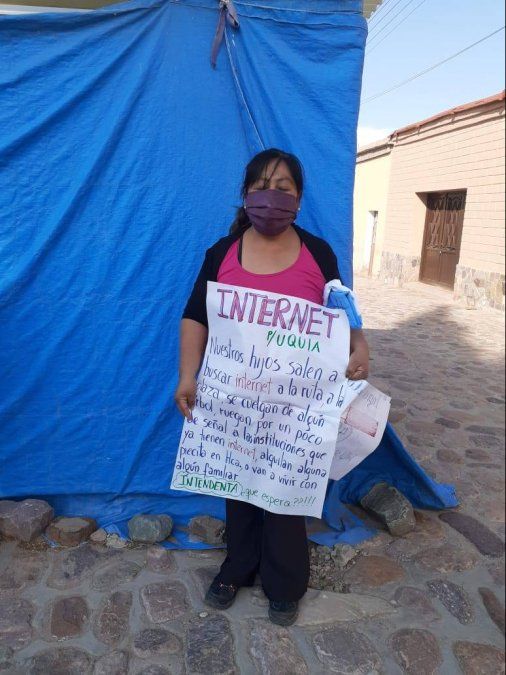 INTERNET
P/UQUIA
Nuestros hijos salen a
buscar internet a la ruta, a la
plaza, se cuelgan de algún
árbol, ruegan por un poco
de señal a las instituciones que
ya tienen internet, alquilan alguna
piecita en Hca, o van a vivir con
algún familiar.
INTENDENTA ¿que espera??!!!